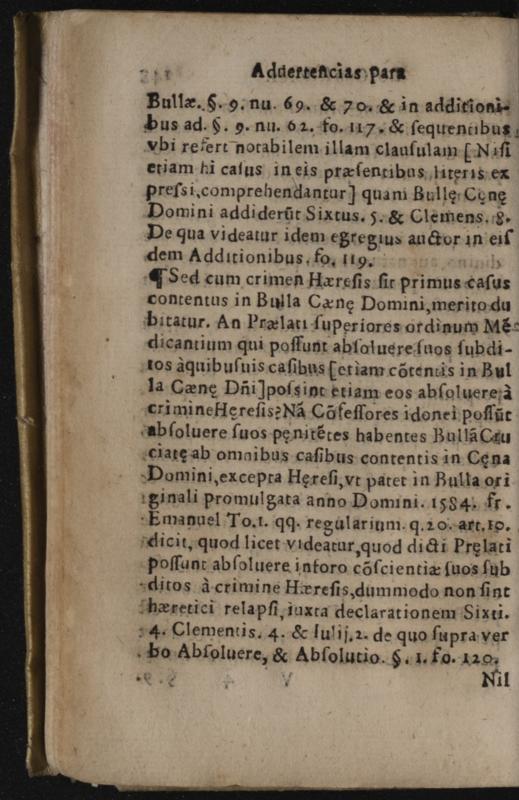 Aduertencias para
Bullæ. §. 9. nu. 69. & 70. & in additioni-
bus ad. §. 9. nu. 62. fo. 117. & sequentibus
vbi refert notabilem illam clausulam [Nisi
etiam hi casus in eis præsentibus literis ex
pressi, comprehendantur] quam Bullę Cęnę
Domini addiderũt Sixtus. 5. & Clemens. 8.
De qua videatur idem egregius auctor in eis
dem Additionibus. fo. 119.
¶ Sed cum crimen Hæresis sit primus casus
contentus in Bulla Cænę Domini, merito du
bitatur. An Prælati superiores ordinum Mẽ-
dicantium qui possunt absoluere suos subdi-
tos à quibusuis casibus [etiam cõtentis in Bul
la Cænę Dñi] possint etiam eos absoluere à
crimine Hęresis? Nã Cõfessores idonei possũt
absoluere suos pęnitẽtes habentes Bullã Cru
ciatę ab omnibus casibus contentis in Cęna
Domini, excepta Hęresi, vt patet in Bulla ori
ginali promulgata anno Domini. 1584. fr.
Emanuel To. 1. qq. regularium. q. 20. art. 10.
dicit, quod licet videatur, quod dicti Pręlati
possunt absoluere in foro cõscientiæ suos sub
ditos à crimine Hæresis, dummodo non sint
hæretici relapsi, iuxta declarationem Sixti.
4. Clementis. 4. & Iulij. 2. de quo supra ver
bo Absoluere, & Absolutio. §. 1. fo. 120.
Nil